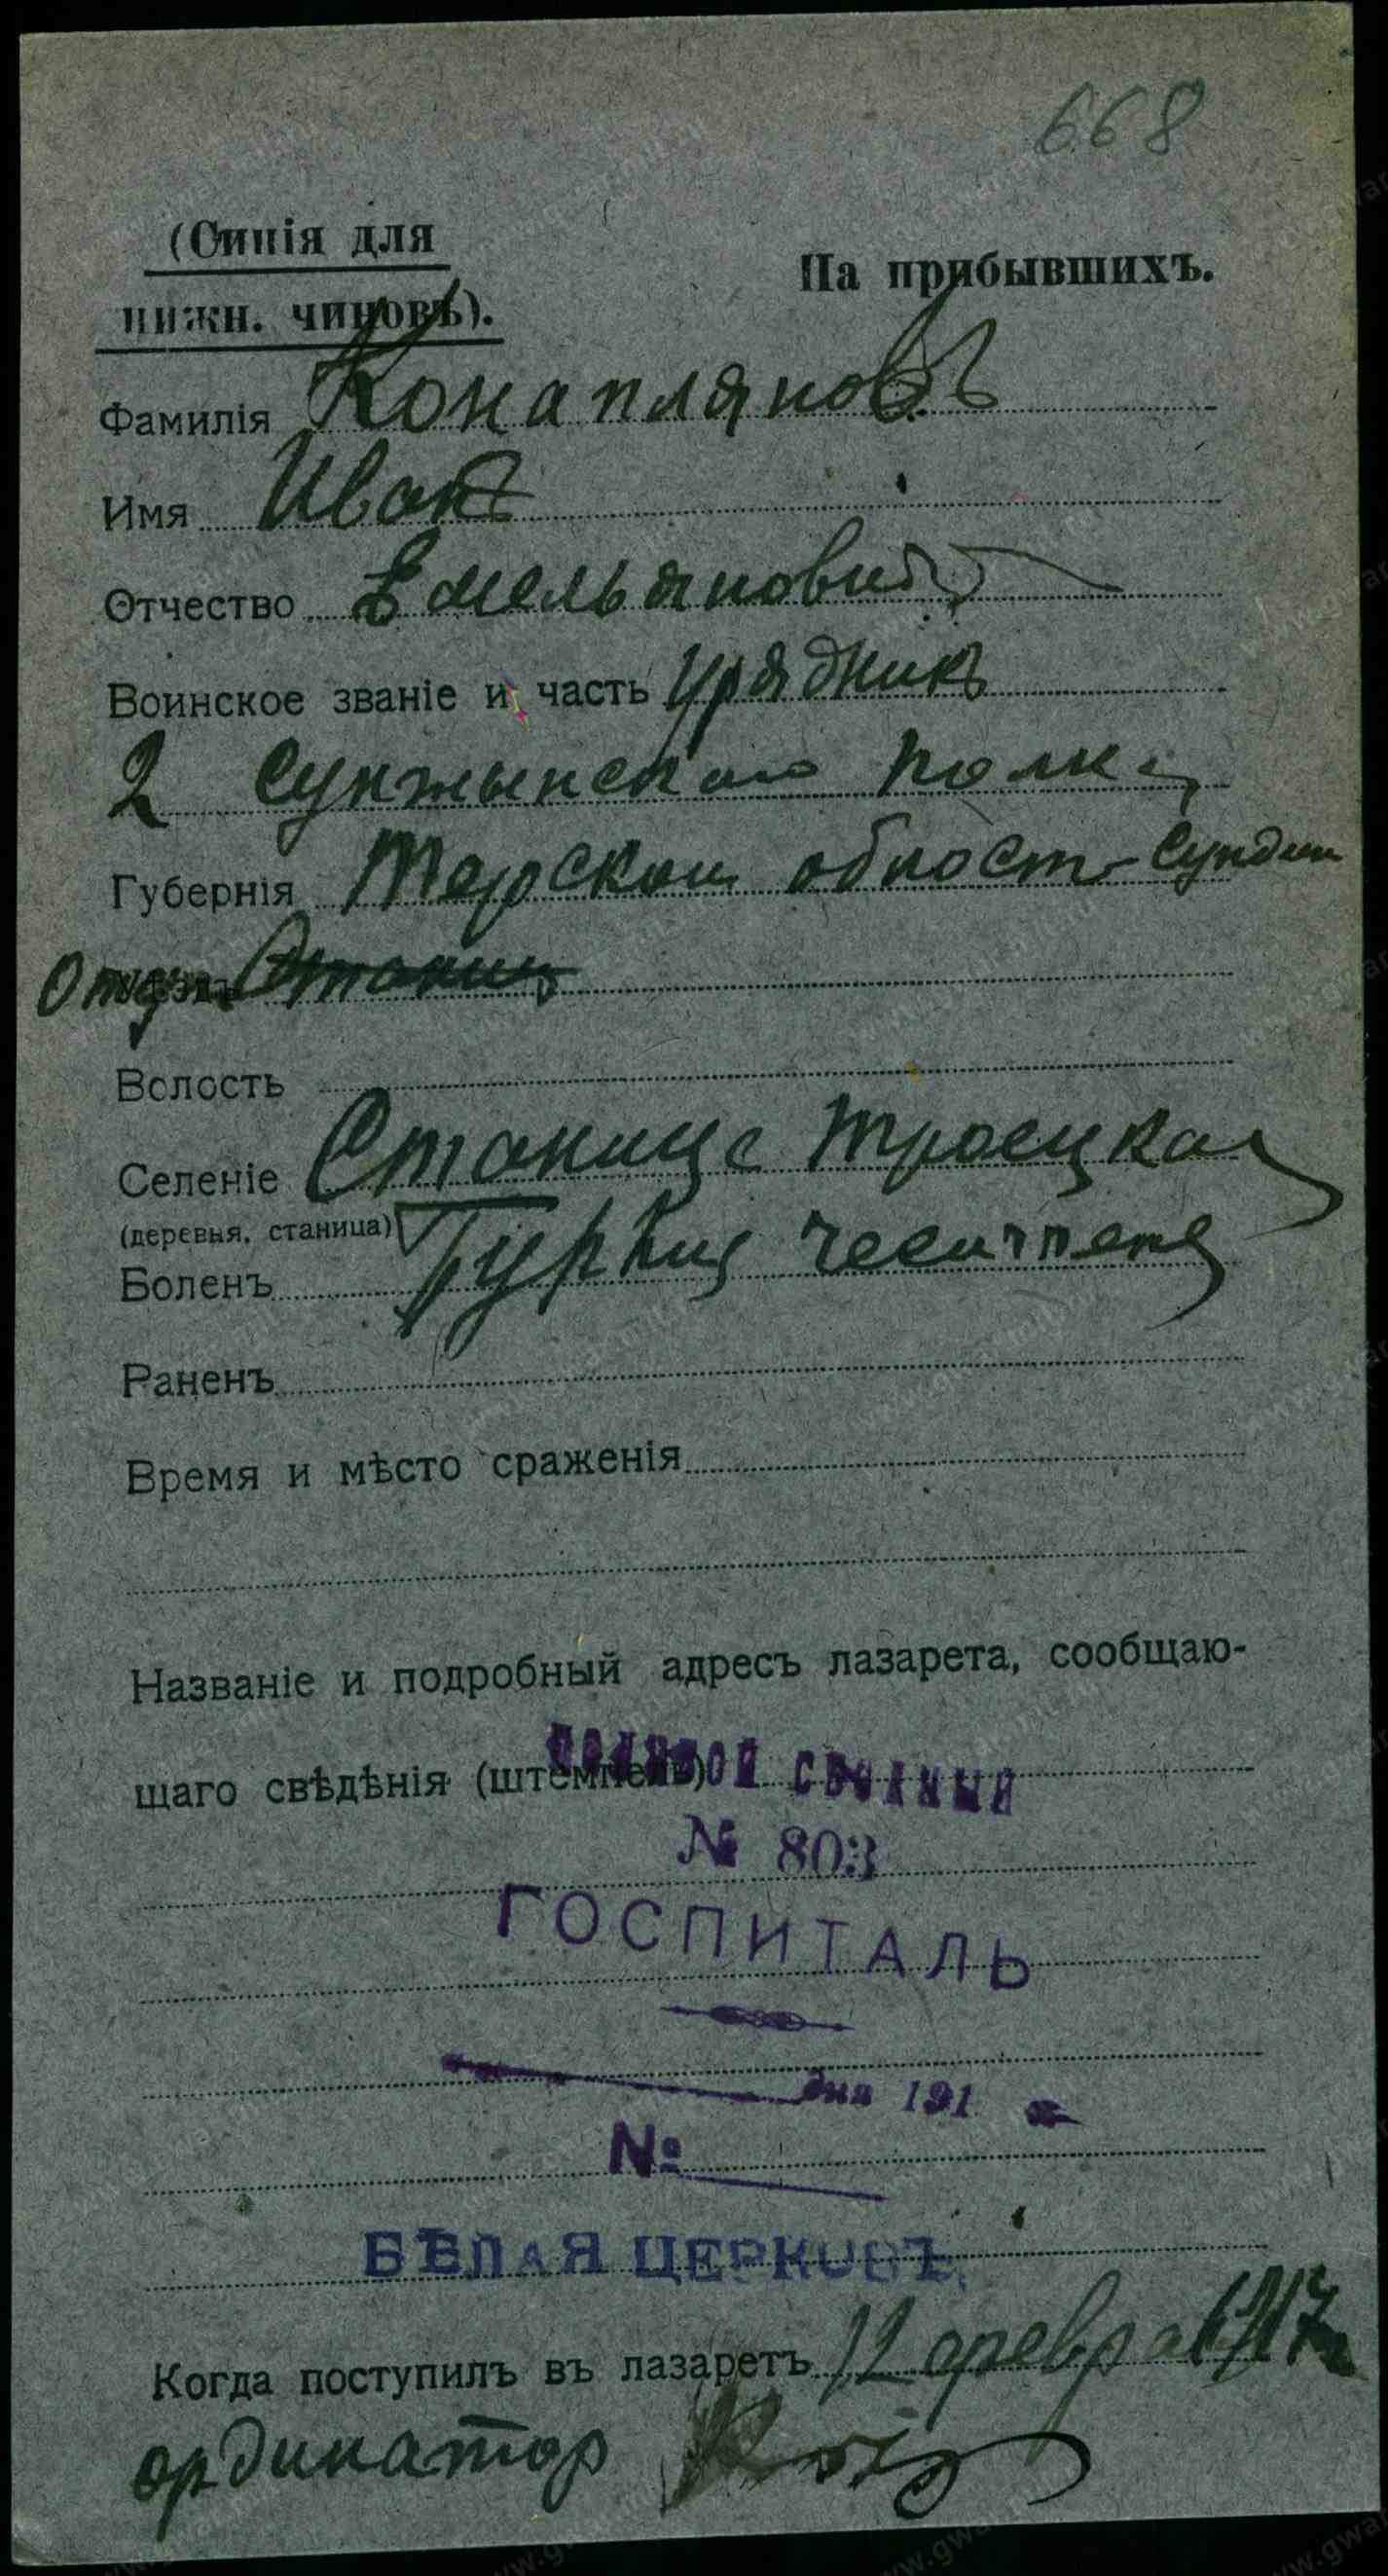 668
(Синія для
нижн. чиновъ).
На прибывшихъ.
Фамилія Конапляновъ
Имя Иванъ
Отчество Емельяновичъ
Воинское званіе и часть Урядникъ
2 Сунжынскаго полка
Губернія Терской област
Отдел
Волость
Селеніе Станица Троецкая
(деревня, станица)
Боленъ
Раненъ
Время и мѣсто сраженія
Названіе и подробный адресъ лазарета, сообщаю-
щаго свѣдѣнія (штемпель)
ПОЛЕВОЙ
№ 803
ГОСПИТАЛЬ
дня 191
№
БѢЛАЯ ЦЕРКОВЬ.
Когда поступилъ въ лазаретъ 12 февра 1917
ординатор